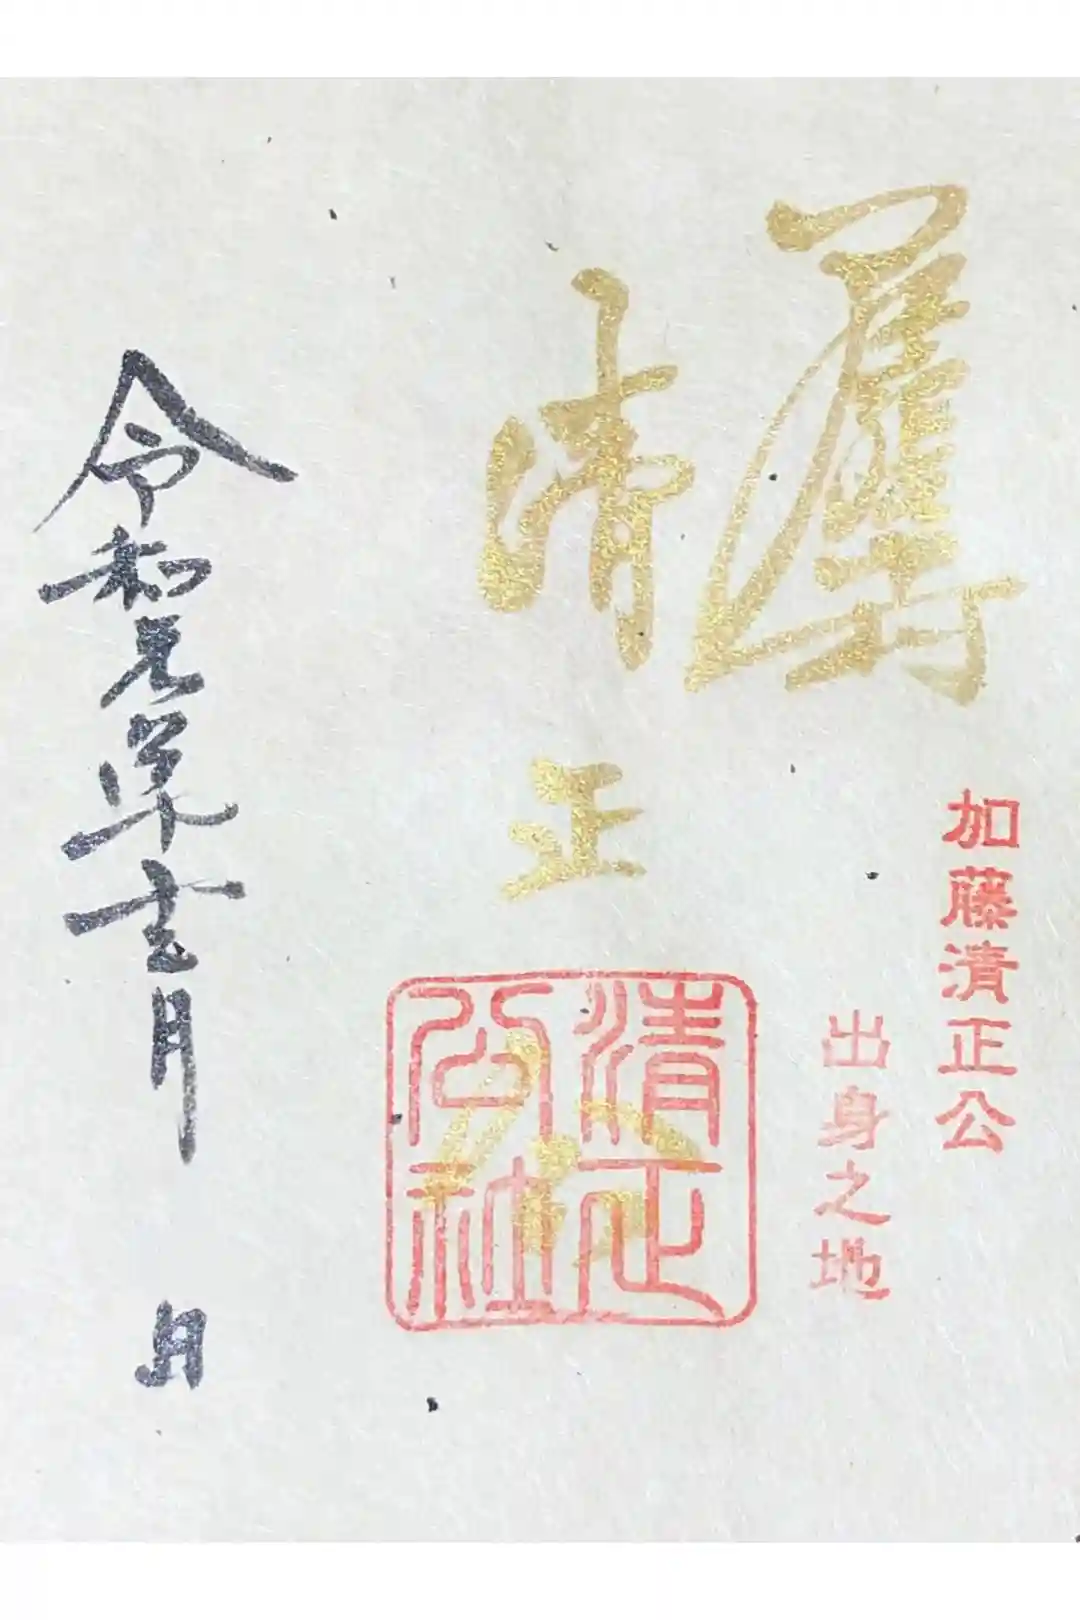 加藤清正公
出身之地
清正公
清正公社
令和元 月 日